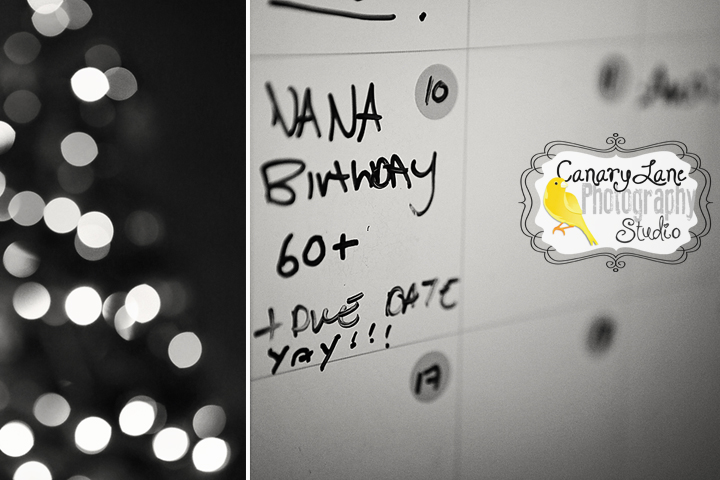 NANA
10
Birthday
60+
+ DUE DATE
YAY!!!
17
Canary Lane
Photography
Studio